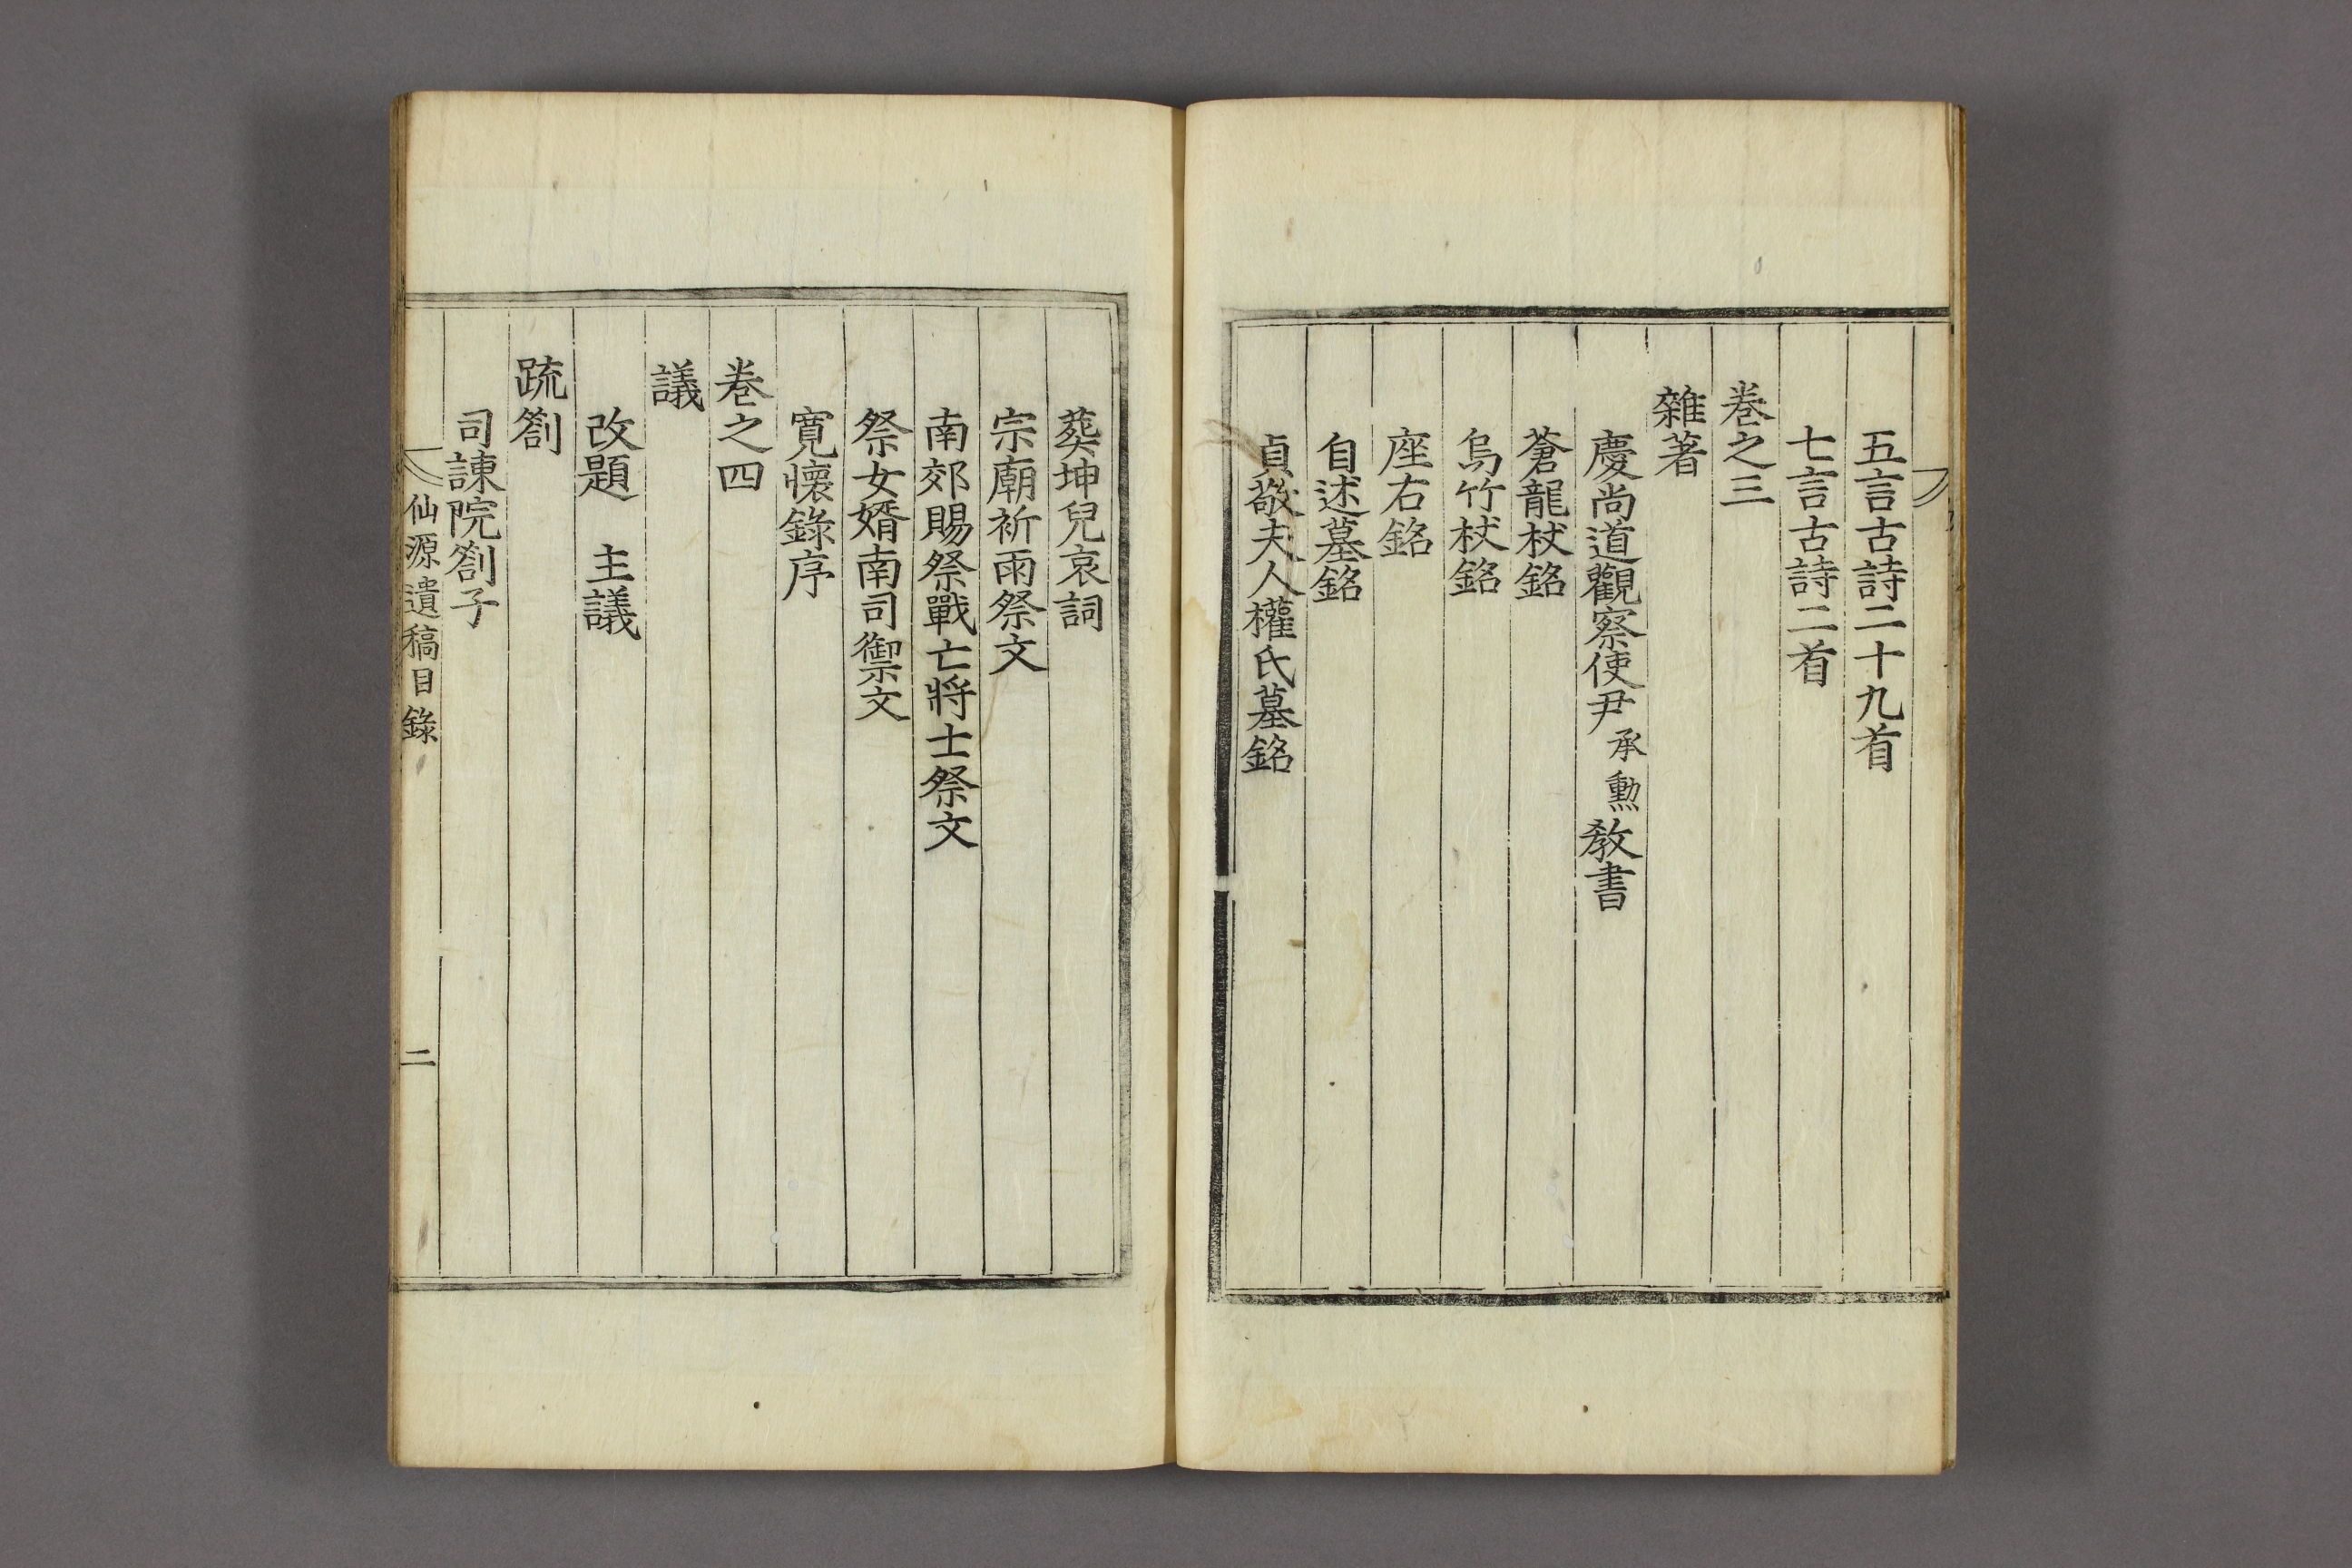 五言古詩二十九首
七言古詩二首
卷之三
雜著
慶尚道觀察使尹承勳教書
蒼龍杖銘
烏竹杖銘
座右銘
自述墓銘
貞敬夫人權氏墓銘
葬坤兒哀詞
宗廟祈雨祭文
南郊賜祭戰亡將士祭文
祭女婿南司禦文
寬懷錄序
卷之四
議
改題 主議
疏劄
司諫院劄子
仙源遺稿目錄 二